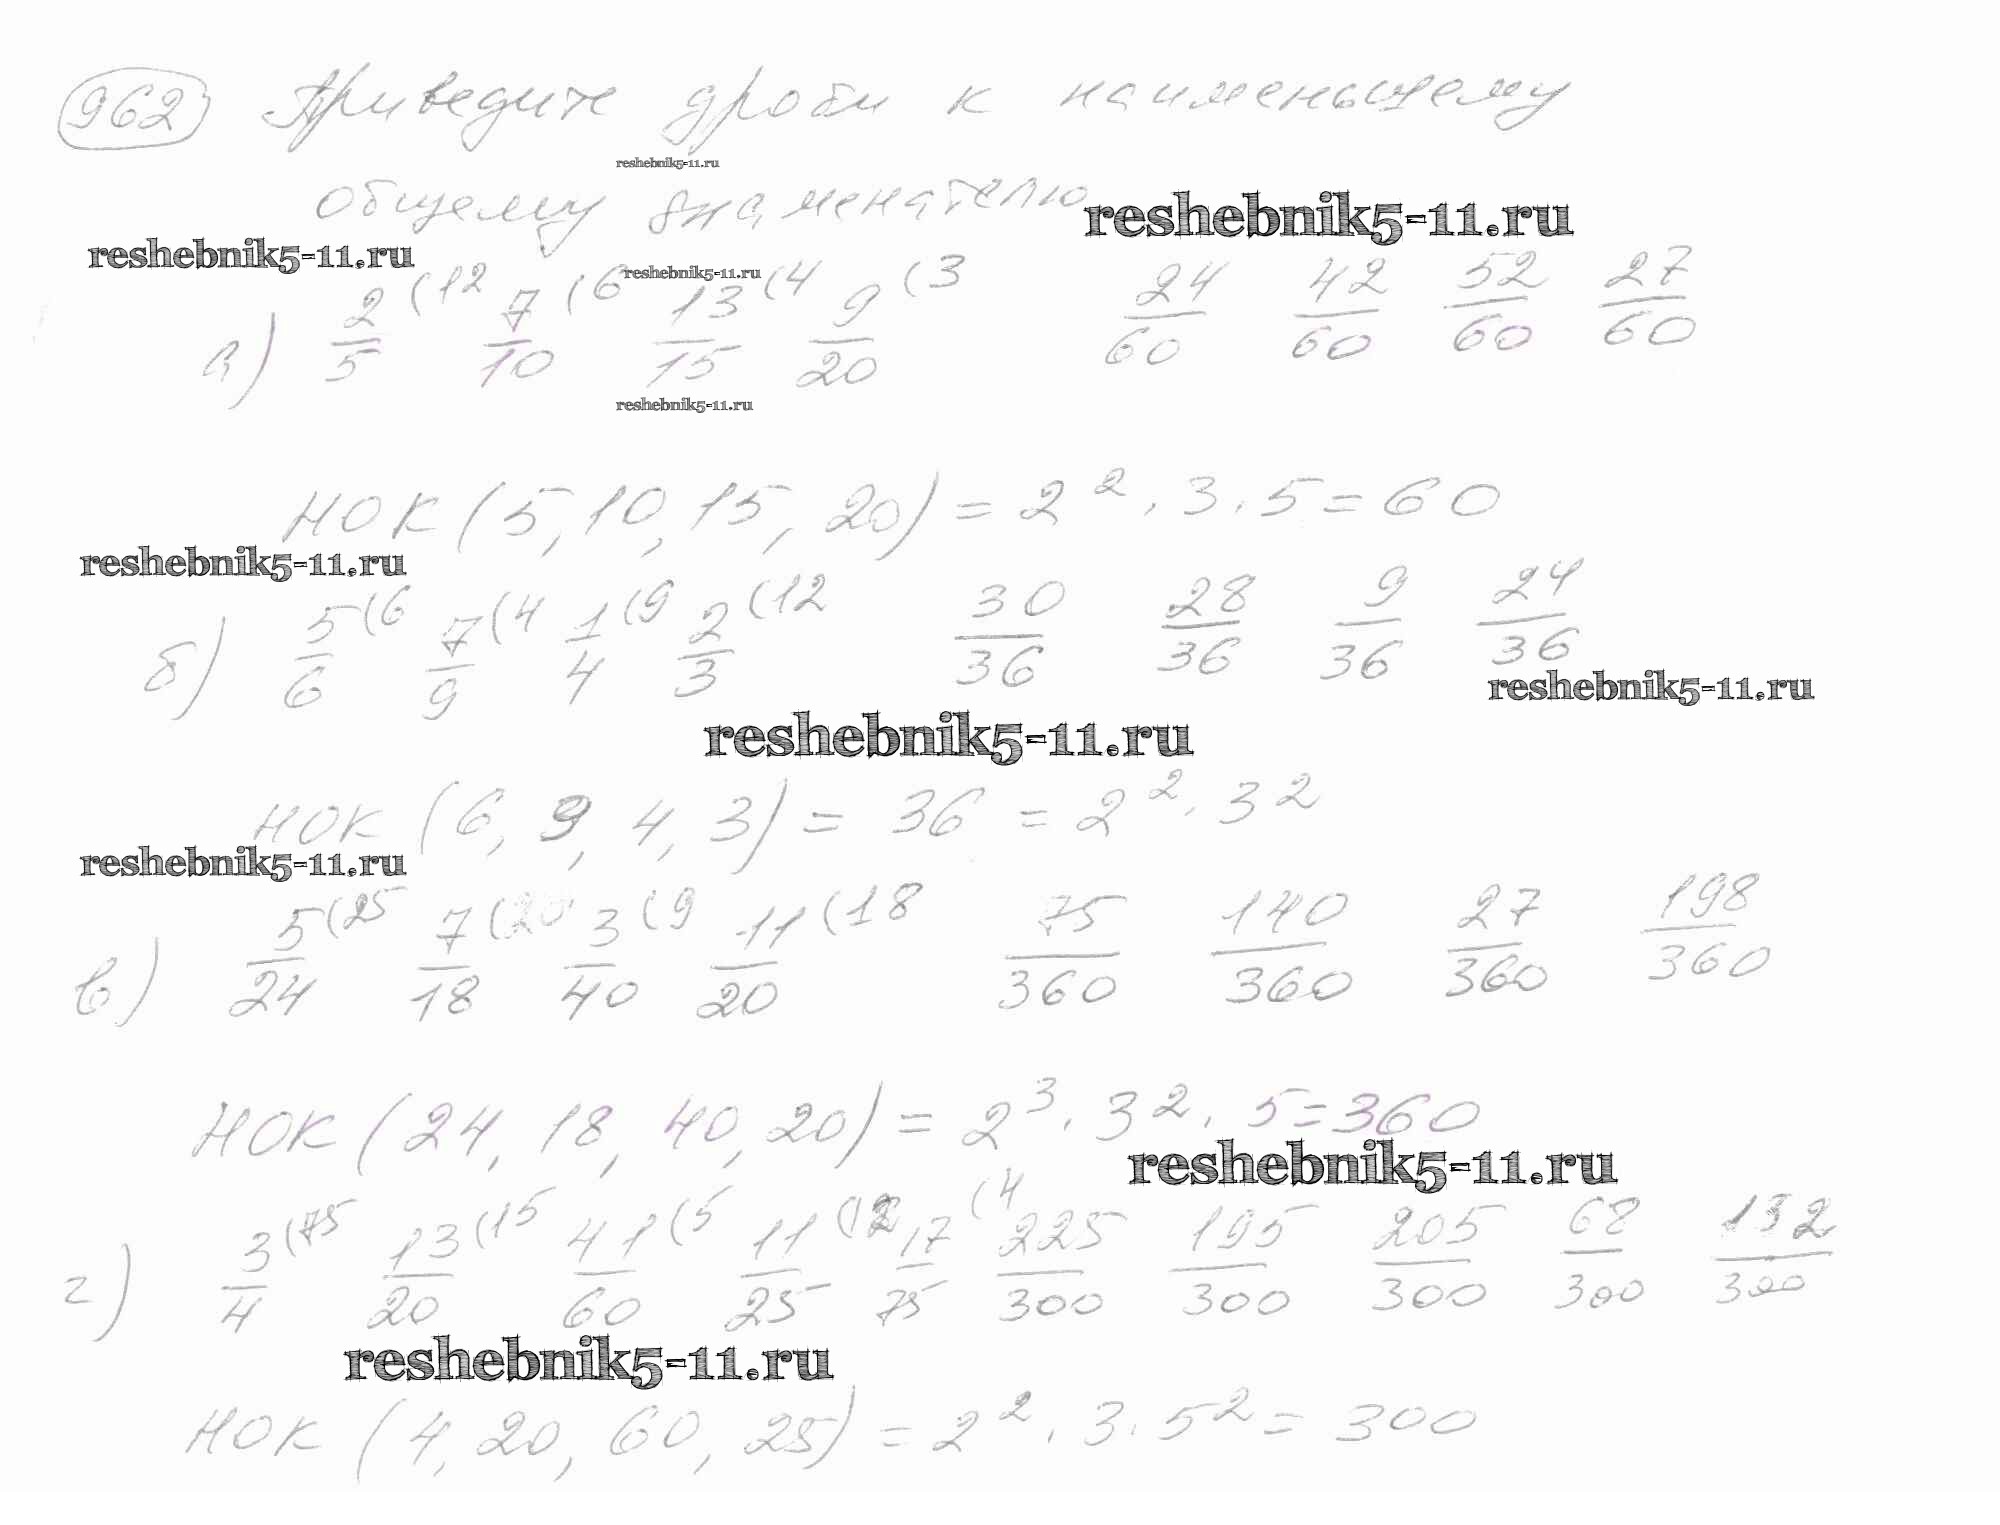 962 Приведите дроби к наименьшему
reshebnik5-11.ru
общему знаменателю
reshebnik5-11.ru
reshebnik5-11.ru
reshebnik5-11.ru
а) 2/5 (12 7/10 (6 13/15 (4 9/20 (3 24/60 42/60 52/60 27/60
reshebnik5-11.ru
НОК (5, 10, 15, 20) = 2² · 3 · 5 = 60
reshebnik5-11.ru
б) 5/6 (6 7/9 (4 1/4 (9 2/3 (12 30/36 28/36 9/36 24/36
reshebnik5-11.ru
reshebnik5-11.ru
НОК (6, 9, 4, 3) = 36 = 2² · 3²
reshebnik5-11.ru
в) 5/24 (25 7/18 (20 3/40 (9 11/20 (18 75/360 140/360 27/360 198/360
НОК (24, 18, 40, 20) = 2³ · 3² · 5 = 360
reshebnik5-11.ru
г) 3/4 (75 13/20 (15 41/60 (5 11/25 (12 17/75 (4 225/300 195/300 205/300 68/300 132/300
reshebnik5-11.ru
НОК (4, 20, 60, 25) = 2² · 3 · 5² = 300